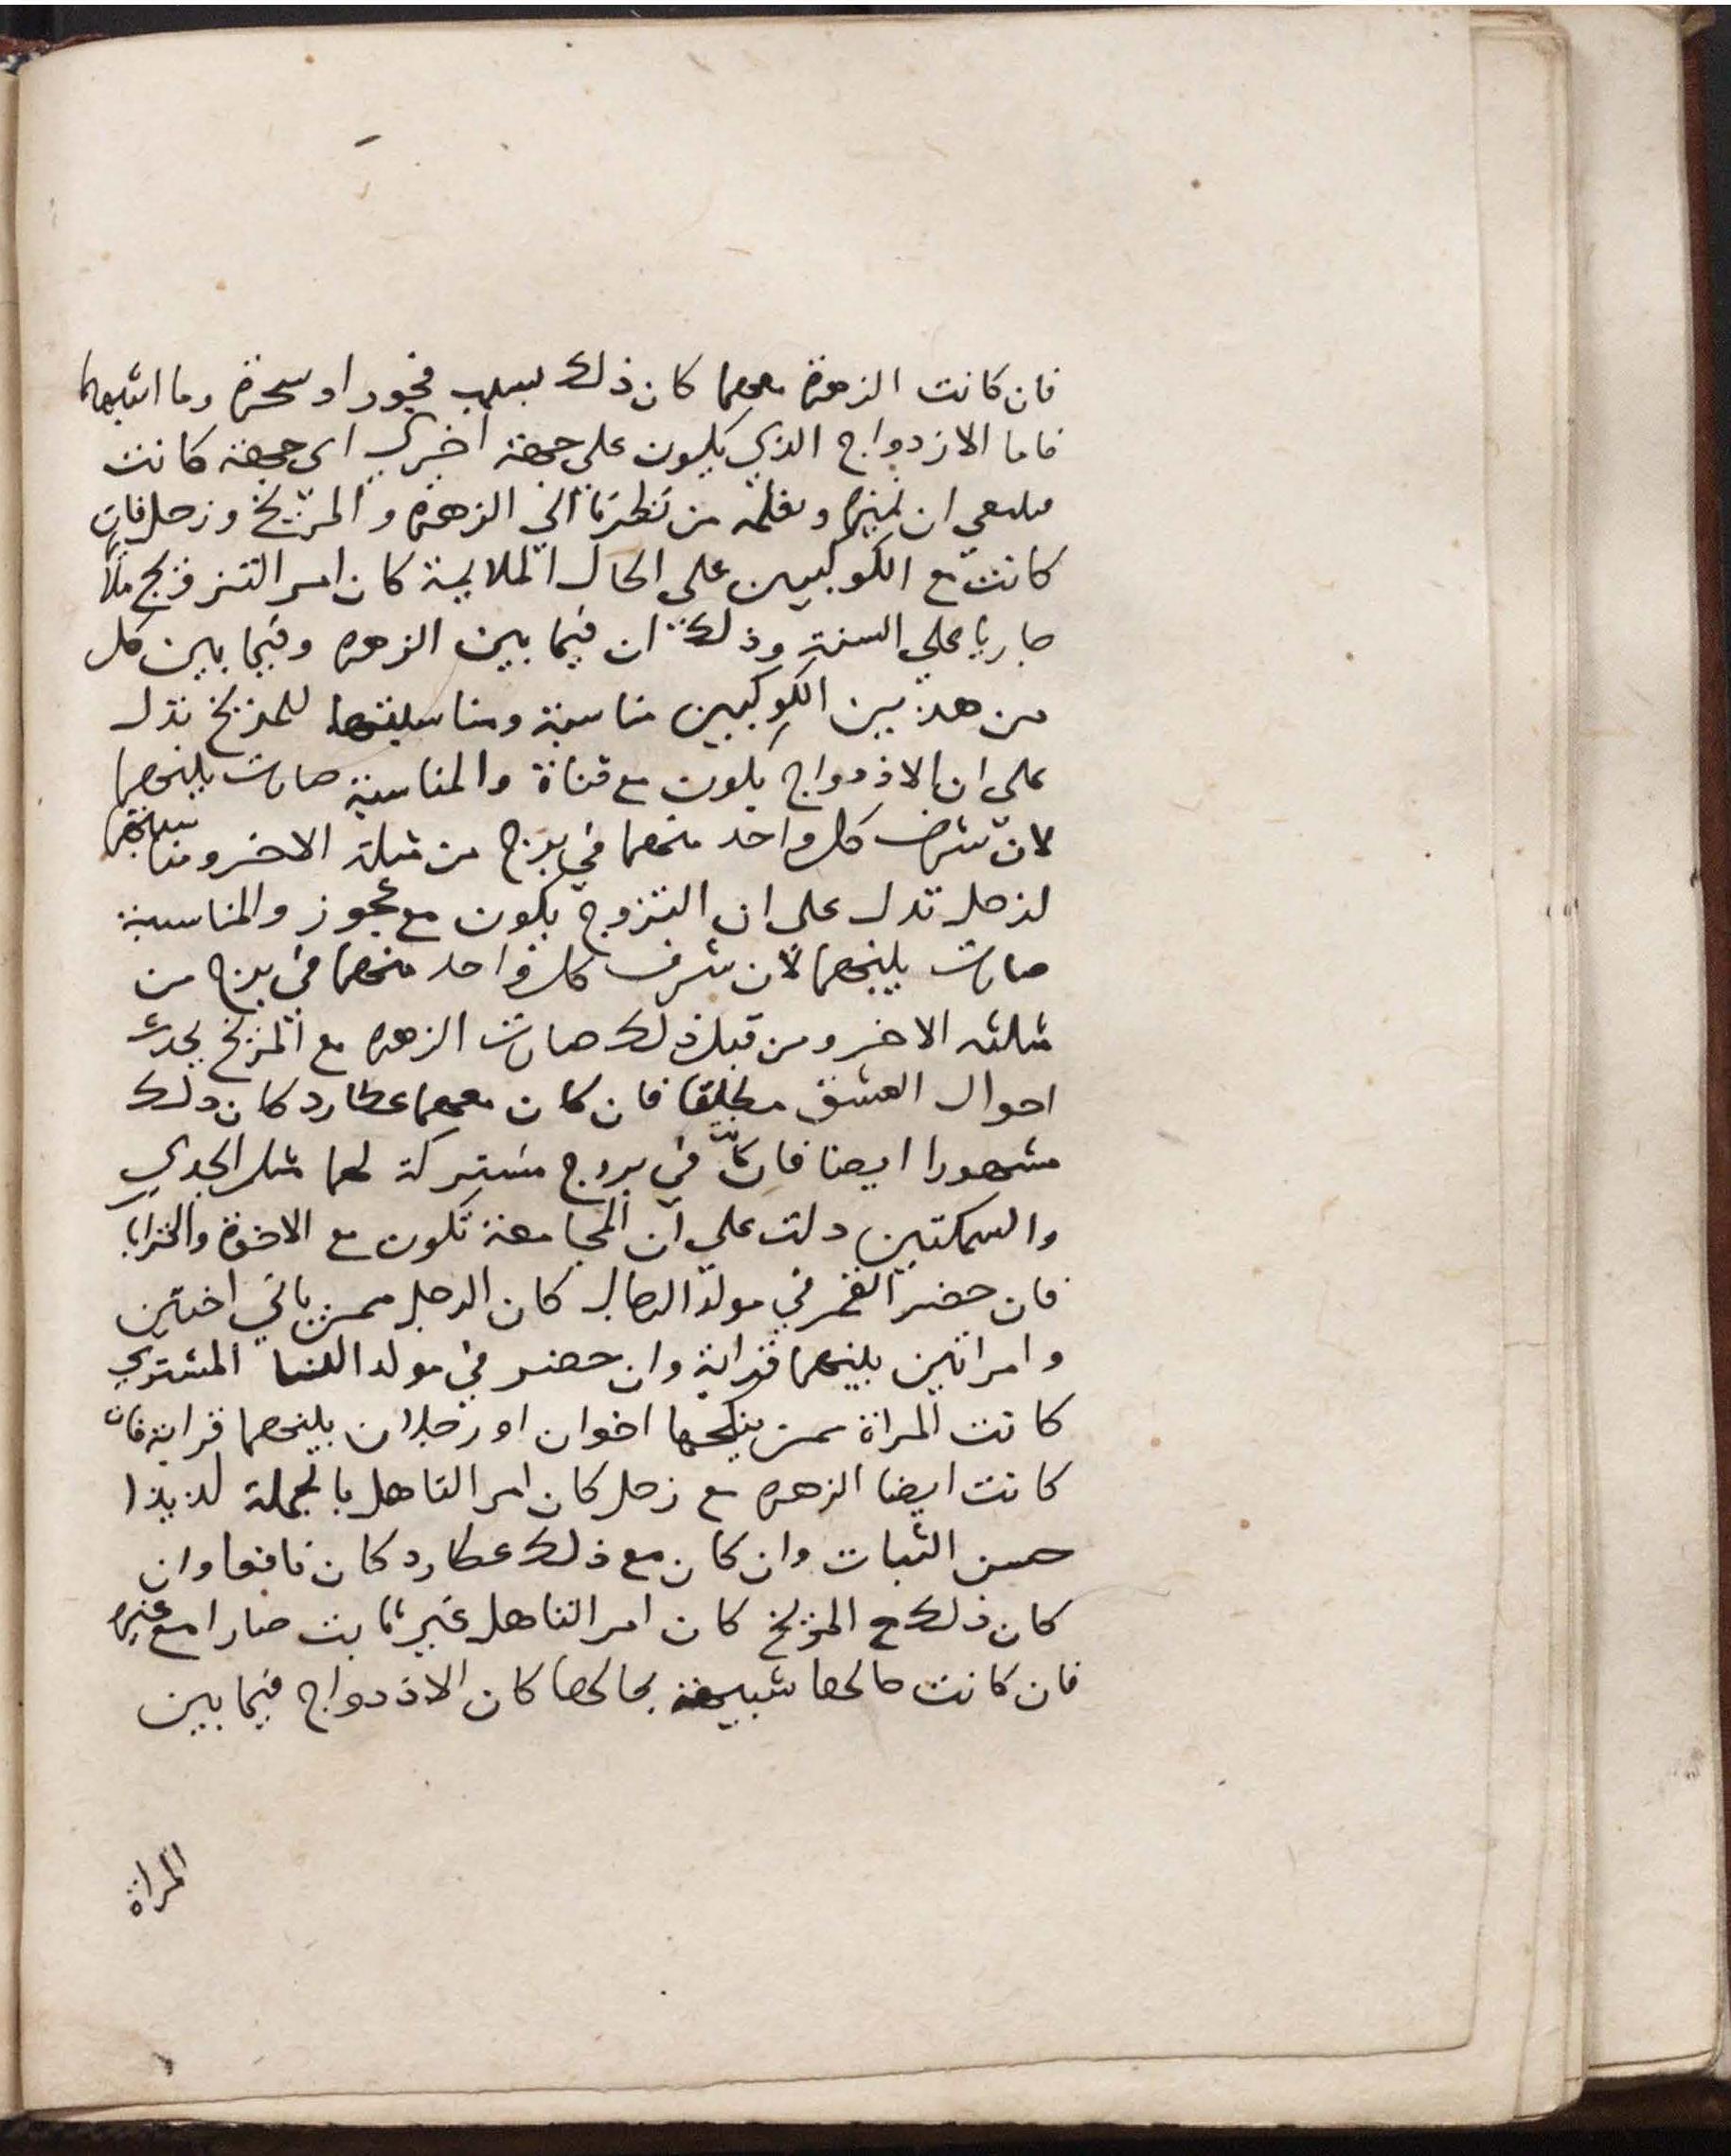 فان كانت الزهرة معهما كان ذلك بسبب فجور او سحرة وما اشبهها
فاما الازدواج الذي يكون على جهة اخرى اي جهة كانت
فينبغي ان نميزه ونعلمه من نظرنا الي الزهرة والمريخ وزحل فان
كانت مع الكوكبين على الحال الملايمة كان امر التزويج
جاريا علي السنة وذلك ان فيما بين الزهره وفيما بين كل
من هذين الكوكبين مناسبة ومناسبتها للمريخ تدل
علي ان الازدواج يكون مع فتاة والمناسبة صارت بينهما
لان شرف كل واحد منهما في برج من مثلثة الاخر ومناسبتها
لزحل تدل على ان التزوج يكون مع عجوز والمناسبة
صارت بينهما لان شرف كل واحد منهما في برج من
مثلثه الاخر ومن قبل ذلك صارت الزهره مع المريخ يحدث
احوال العشق مطلقا فان كان معهما عطارد كان ذلك
مشهورا ايضا فان كانت في بروج مشتركة لهما مثل الجدي
والسمكتين دلت علي ان المجامعة تكون مع الاخوة والقرابا
فان حضر القمر في مولد الرجال كان الرجل ممن ياتي اختين
وامراتين بينهما قرابة وان حضر في مولد النسا المشتري
كانت المراة ممن ينكحها اخوان او رجلان بينهما قرابة فان
كانت ايضا الزهره مع زحل كان امر التاهل بالجملة لذيذا
حسن الثبات وان كان مع ذلك عطارد كان نافعا وان
كان ذلك مع المريخ كان امر التاهل غير ثابت ضارا مع غيره
فان كانت حالها شبيهة بحالها كان الازدواج فيما بين
المراة